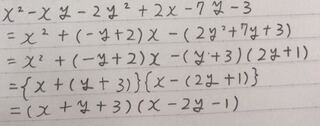 x²-xy-2y²+2x-7y-3
=x²+(-y+2)x-(2y²+7y+3)
=x²+(-y+2)x-(y+3)(2y+1)
={x+(y+3)}{x-(2y+1)}
=(x+y+3)(x-2y-1)